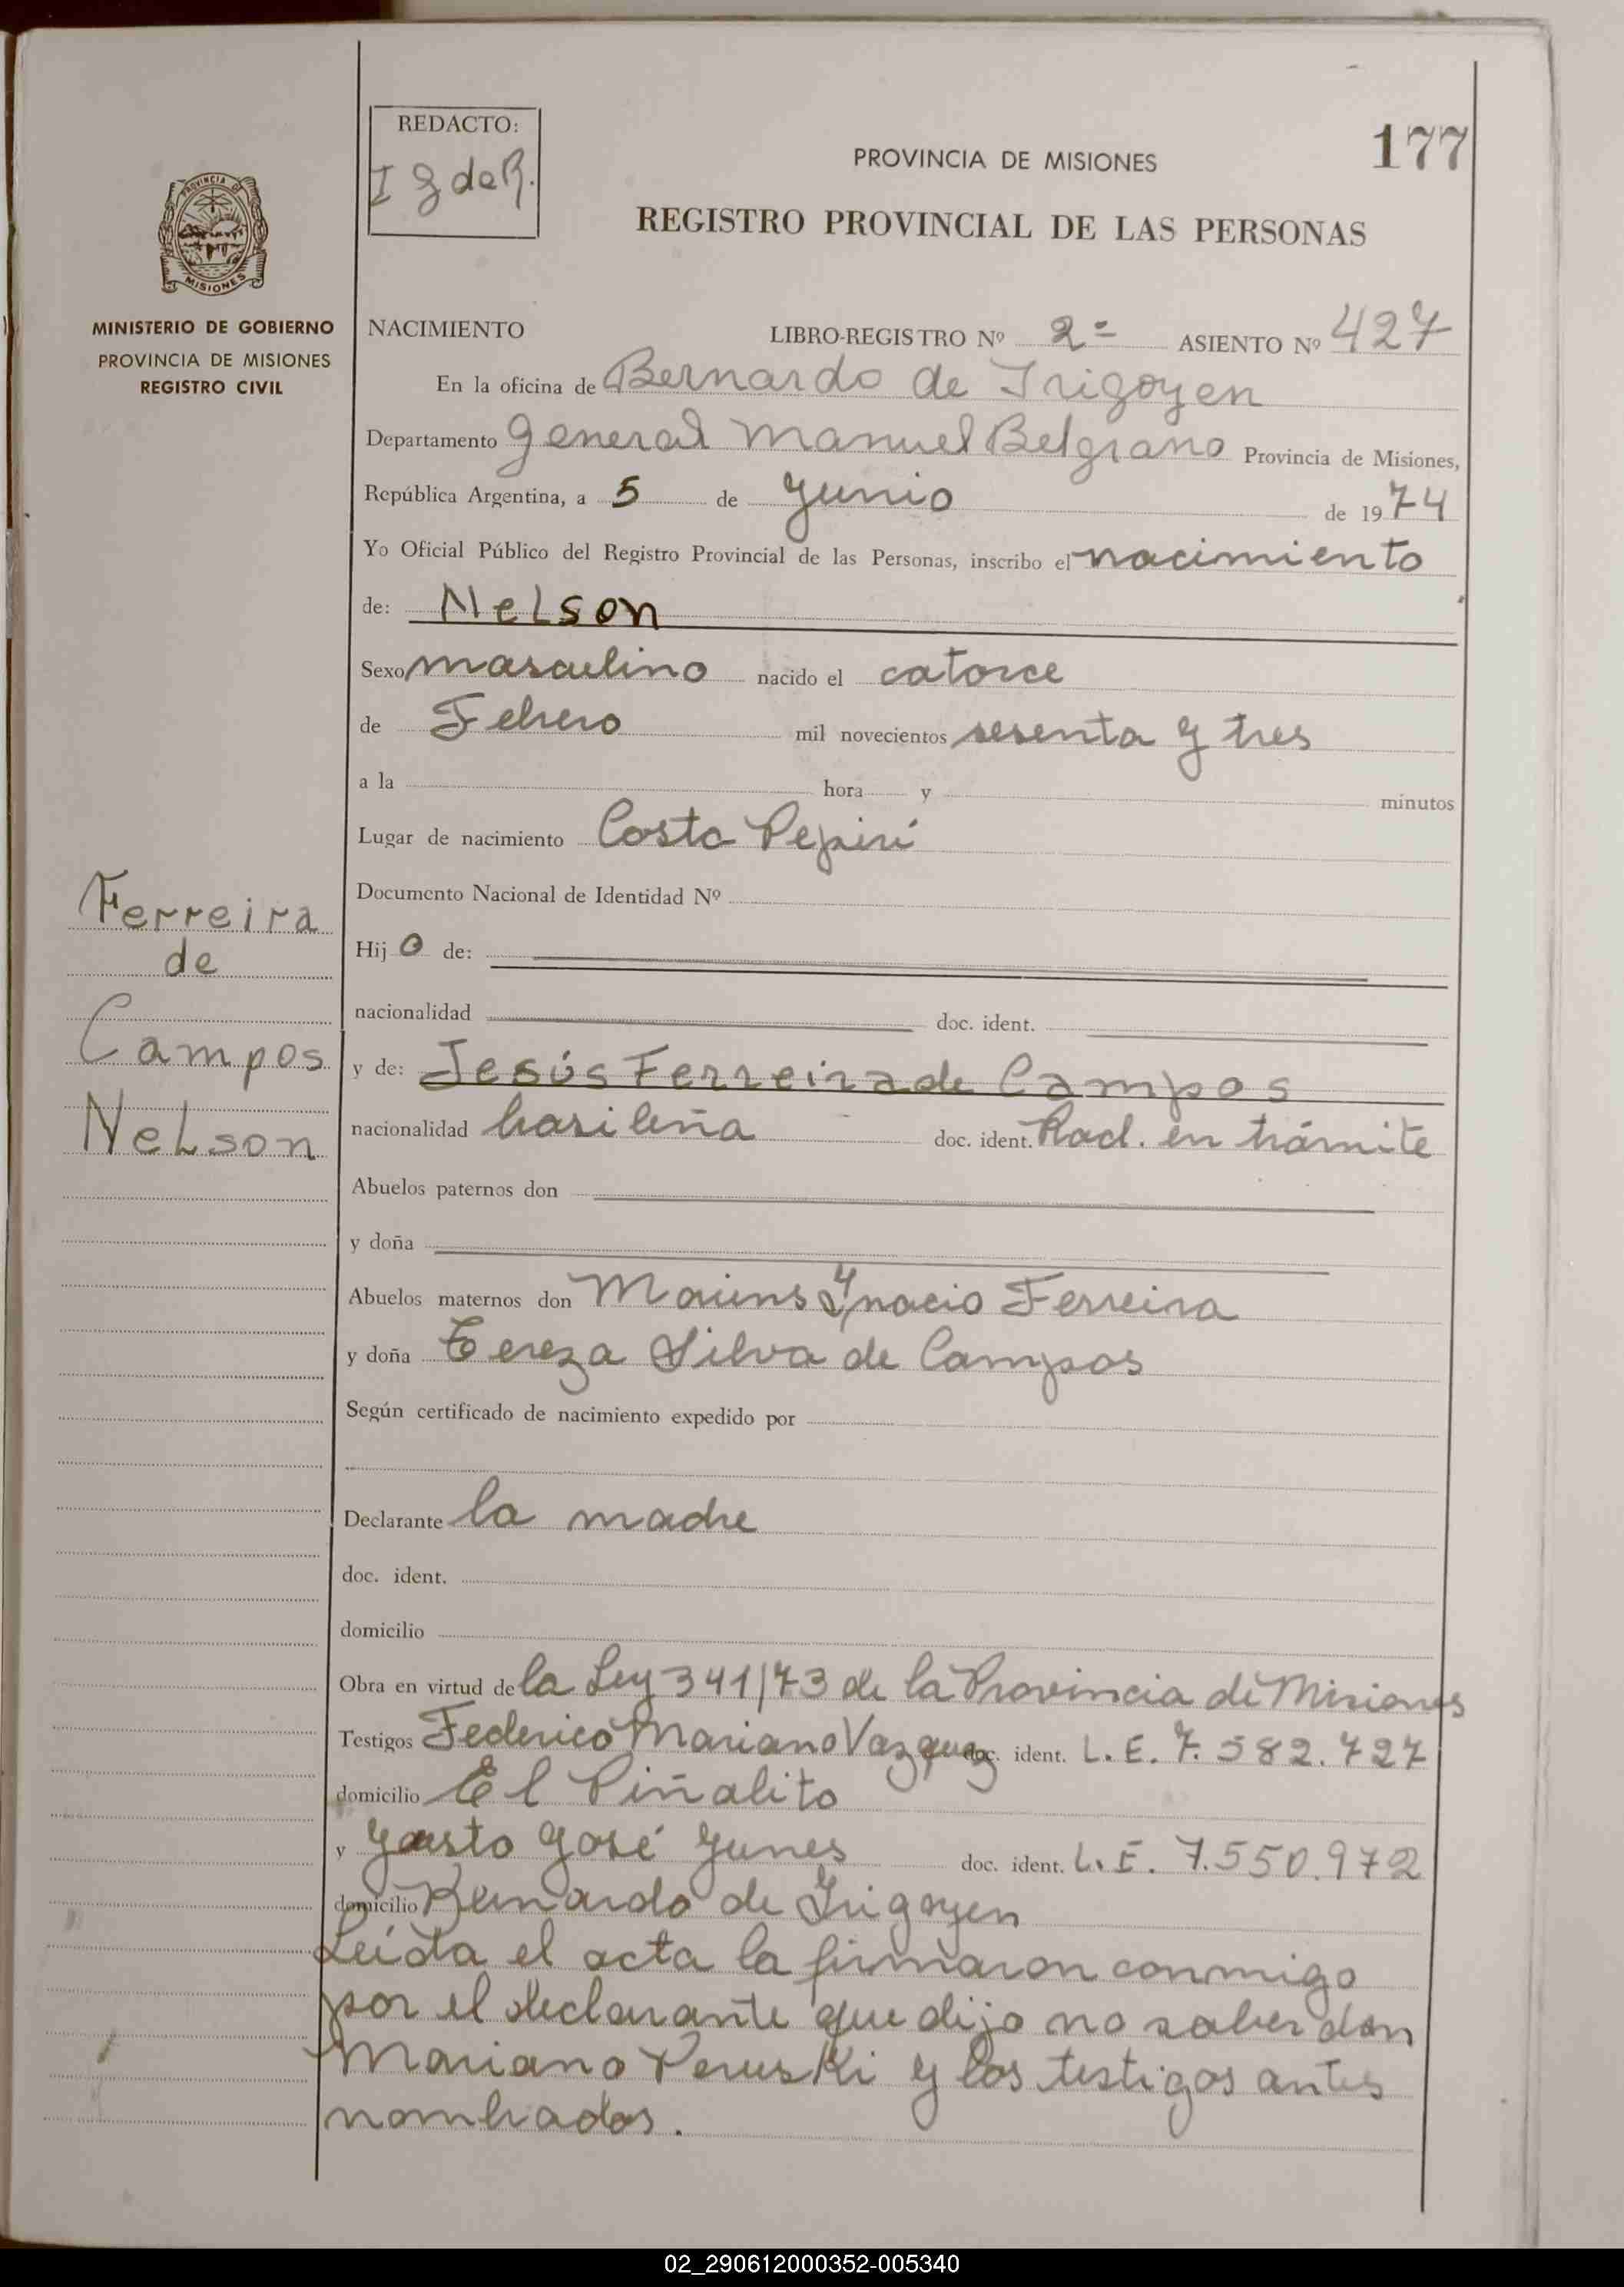 REDACTO:
I G de R.
177
PROVINCIA DE MISIONES
REGISTRO PROVINCIAL DE LAS PERSONAS
PROVINCIA DE
MISIONES
MINISTERIO DE GOBIERNO
PROVINCIA DE MISIONES
REGISTRO CIVIL
NACIMIENTO LIBRO-REGISTRO Nº 2º ASIENTO Nº 427
En la oficina de Bernardo de Irigoyen
Departamento General Manuel Belgrano Provincia de Misiones,
República Argentina, a 5 de Junio de 1974
Yo Oficial Público del Registro Provincial de las Personas, inscribo el nacimiento
de: Nelson
Sexo masculino nacido el catorce
de Febrero mil novecientos sesenta y tres
a la hora y minutos
Lugar de nacimiento Costa Pepirí
Documento Nacional de Identidad Nº
Ferreira
de
Campos
Nelson
Hijo de:
nacionalidad doc. ident.
y de: Jesús Ferreira de Campos
nacionalidad brasileña doc. ident. Rad. en trámite
Abuelos paternos don
y doña
Abuelos maternos don Ynacio Ferreira
y doña Tereza Silva de Campos
Según certificado de nacimiento expedido por
Declarante la madre
doc. ident.
domicilio
Obra en virtud de la Ley 341/73 de la Provincia de Misiones
Testigos Federico Mariano Vazquez doc. ident. L. E. 7.582.727
domicilio El Piñalito
y Justo José Junes doc. ident. L. E. 7.550.972
domicilio Bernardo de Irigoyen
Leída el acta la firmaron conmigo
por el declarante que dijo no saber don
Mariano Peruski y los testigos antes
nombrados.
02_290612000352-005340